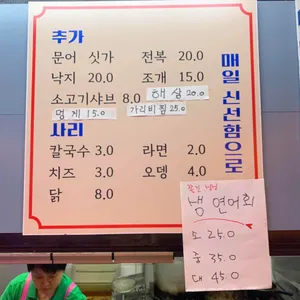 추가
문어 싯가 전복 20.0
낙지 20.0 조개 15.0
소고기샤브 8.0 해삼 20.0
멍게 15.0 가리비찜 25.0
사리
칼국수 3.0 라면 2.0
치즈 3.0 오뎅 4.0
닭 8.0
매일 신선함으로
냉 연어회
소 25.0
중 35.0
대 45.0